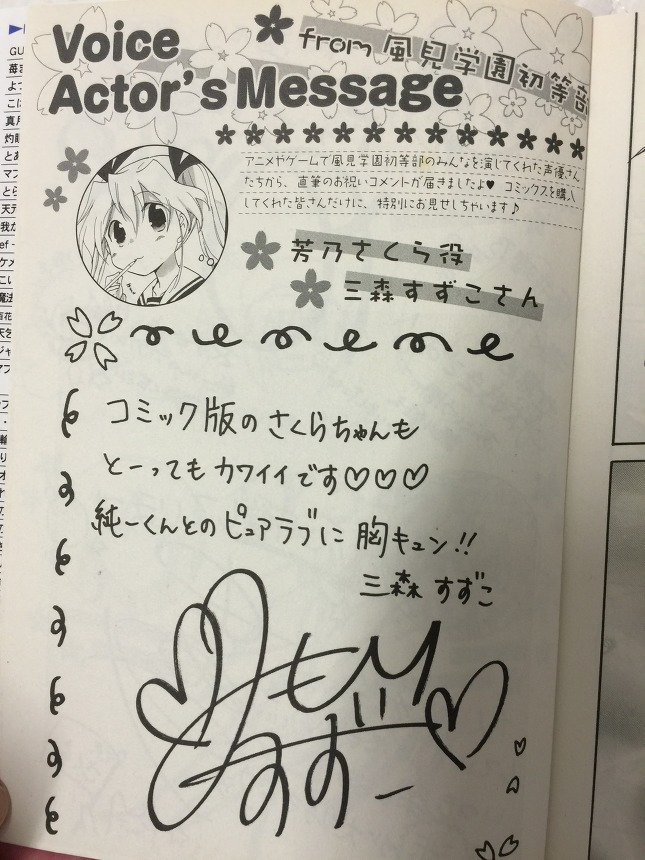 Voice
Actor's Message
from 風見学園初等部
アニメやゲームで風見学園初等部のみんなを演じてくれた声優さん
たちから、直筆のお祝いコメントが届きましたよ♥ コミックスを購入
してくれた皆さんだけに、特別にお見せしちゃいます♪
芳乃さくら役
三森すずこさん
コミック版のさくらちゃんも
とーってもカワイイです♡♡♡
純一くんとのピュアラブに胸キュン!!
三森すずこ